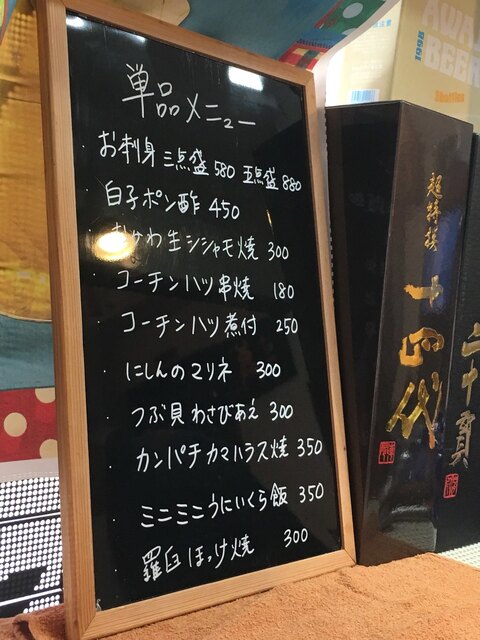 単品メニュー
お刺身 三点盛 580 五点盛 880
白子ポン酢 450
生シシャモ焼 300
コーチンハツ串焼 180
コーチンハツ煮付 250
にしんのマリネ 300
つぶ貝わさびあえ 300
カンパチカマハラス焼 350
ミニミニうにいくら飯 350
羅臼ほっけ焼 300
AWA
BEER
1998
超特撰
十四代
二十貫